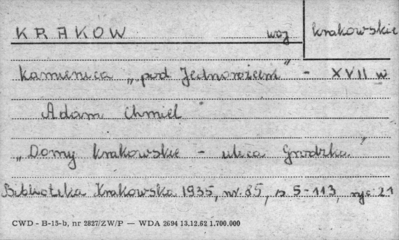 KRAKOW woj krakowskie
Kamienica „pod Jednorożcem" - XVII w
Adam Chmiel
„Domy krakowskie - ulica Grodzka"
Biblioteka Krakowska 1935, nr. 85, s 5-113, ryc. 21
CWD - B-15-b, nr 2827/ZW/P — WDA 2694 13.12.62 1.700.000